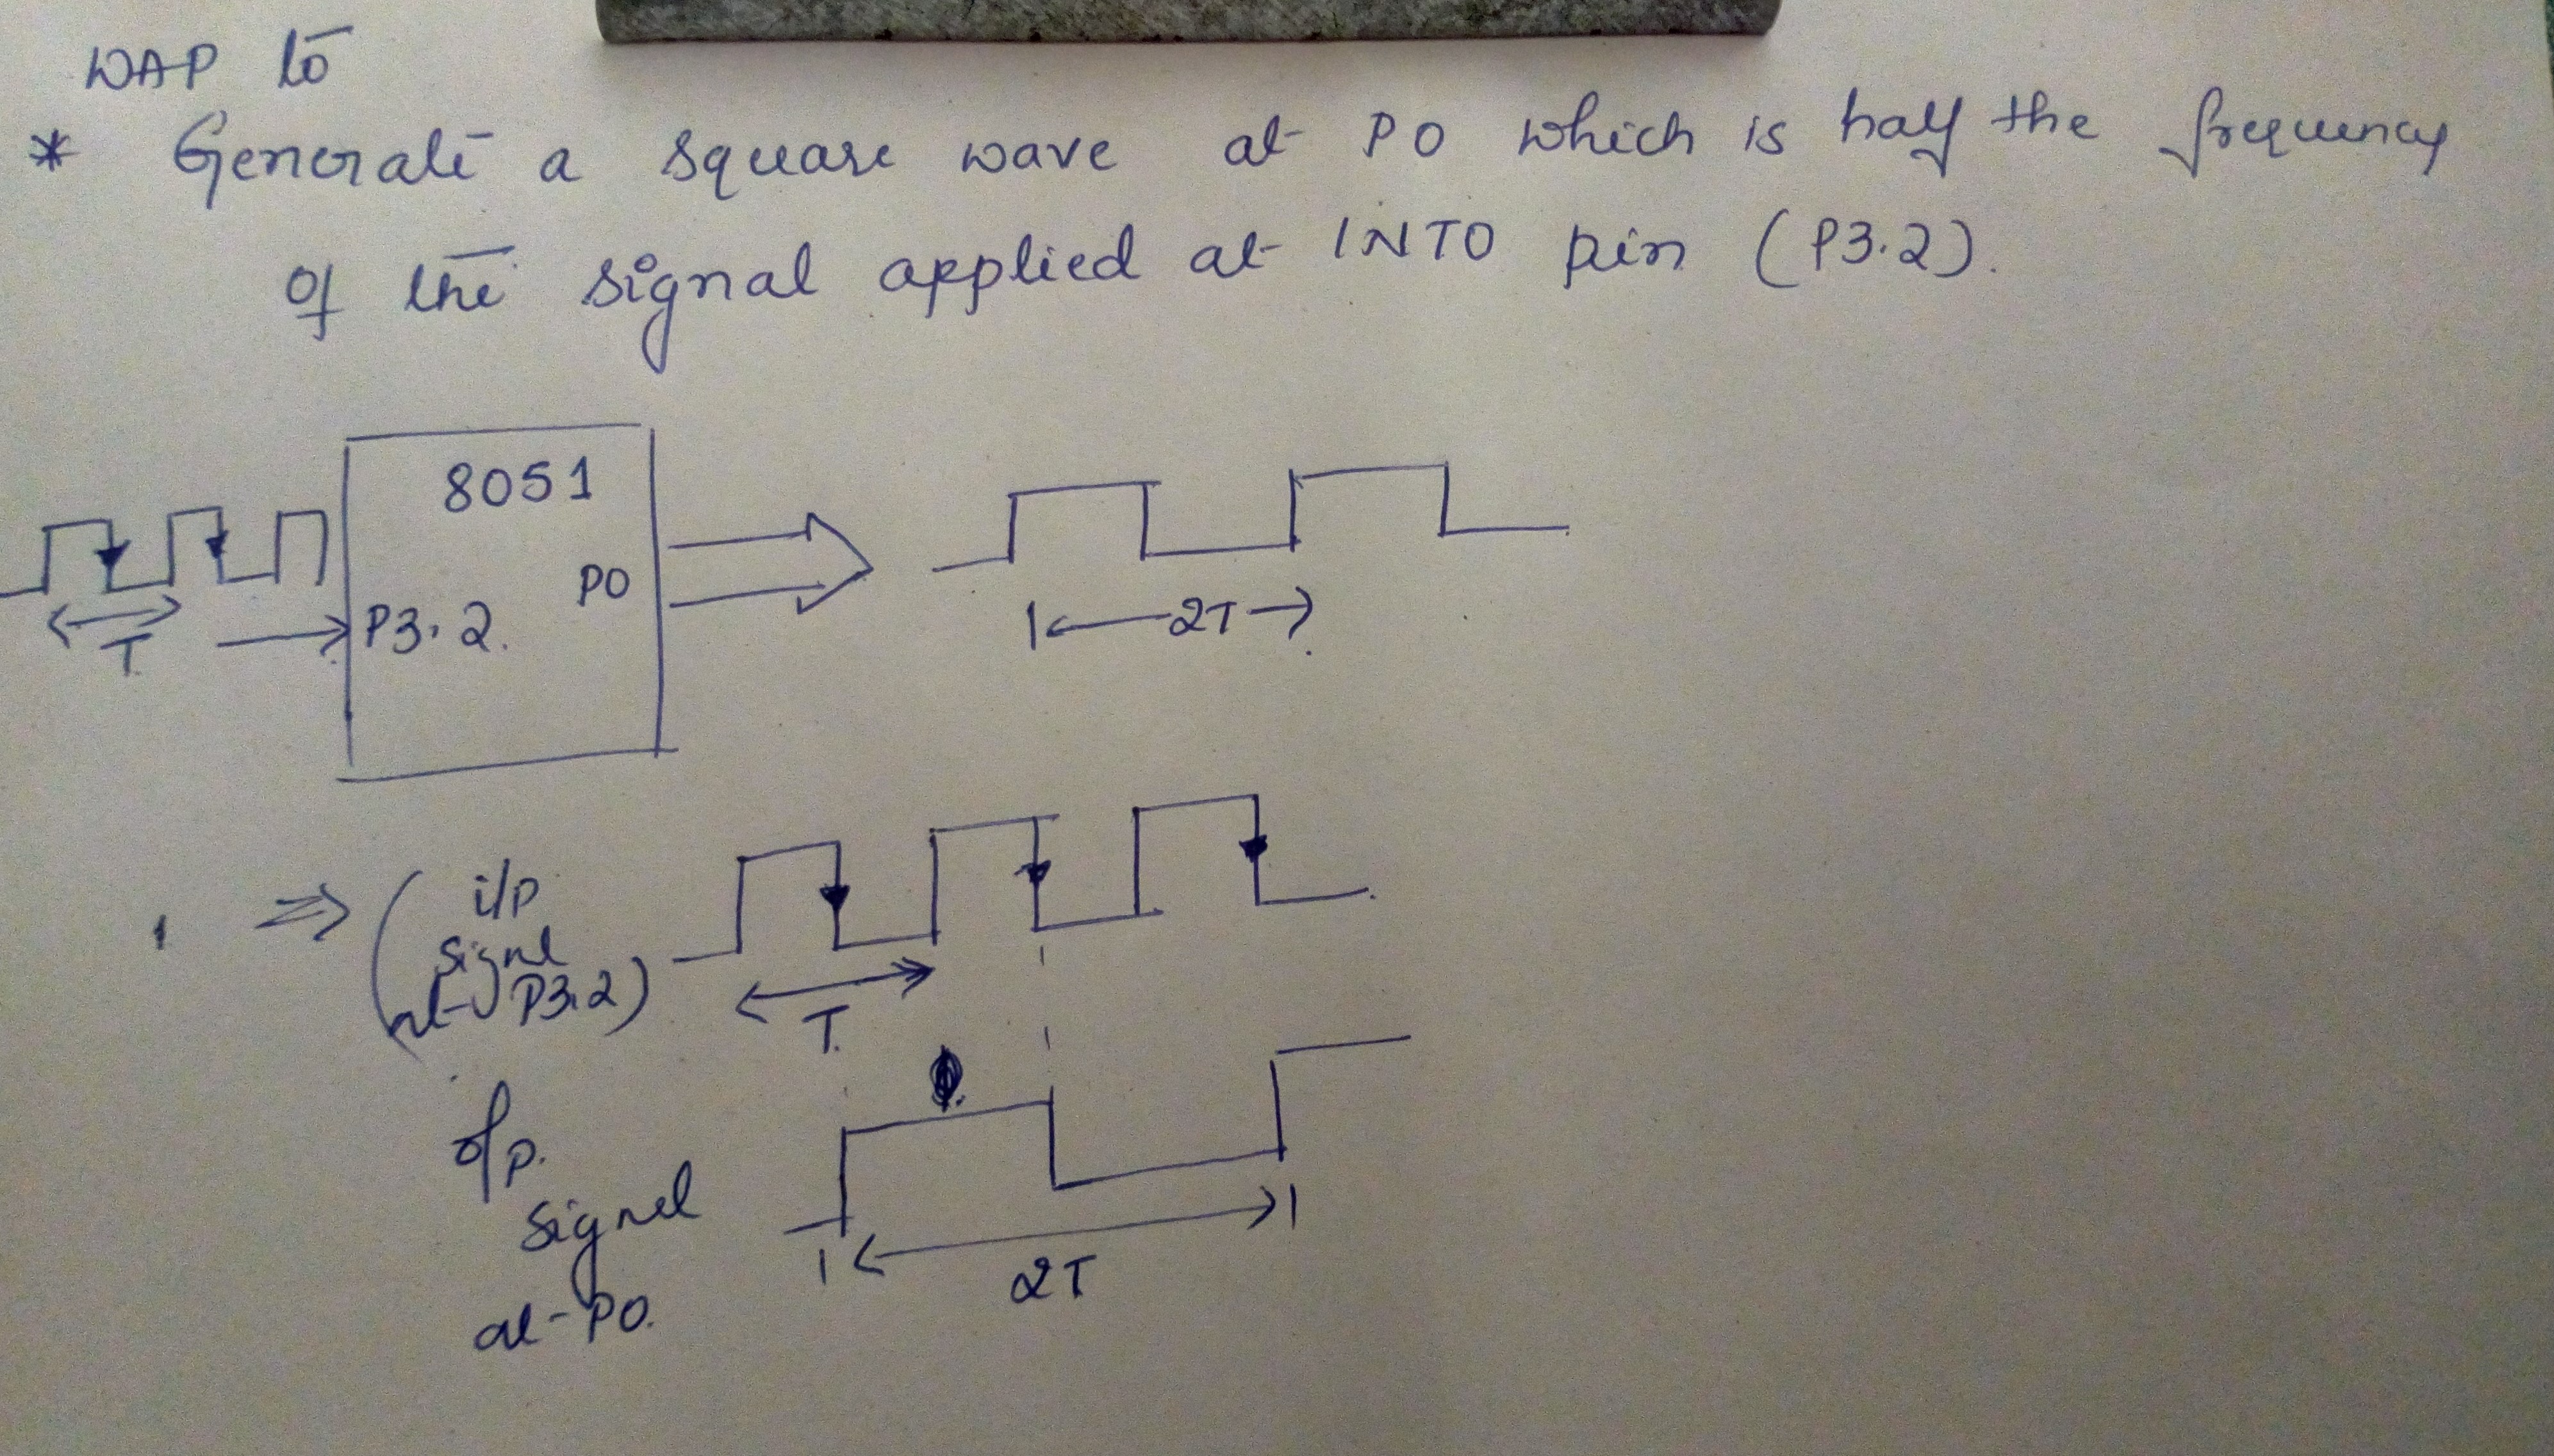 WAP to
* Generate a square wave at P0 which is half the frequency
of the signal applied at INT0 pin (P3.2).
8051
P0
P3.2.
T
2T
⇒ (i/p
signl
at P3.2)
T.
o/p.
signal
at P0.
2T